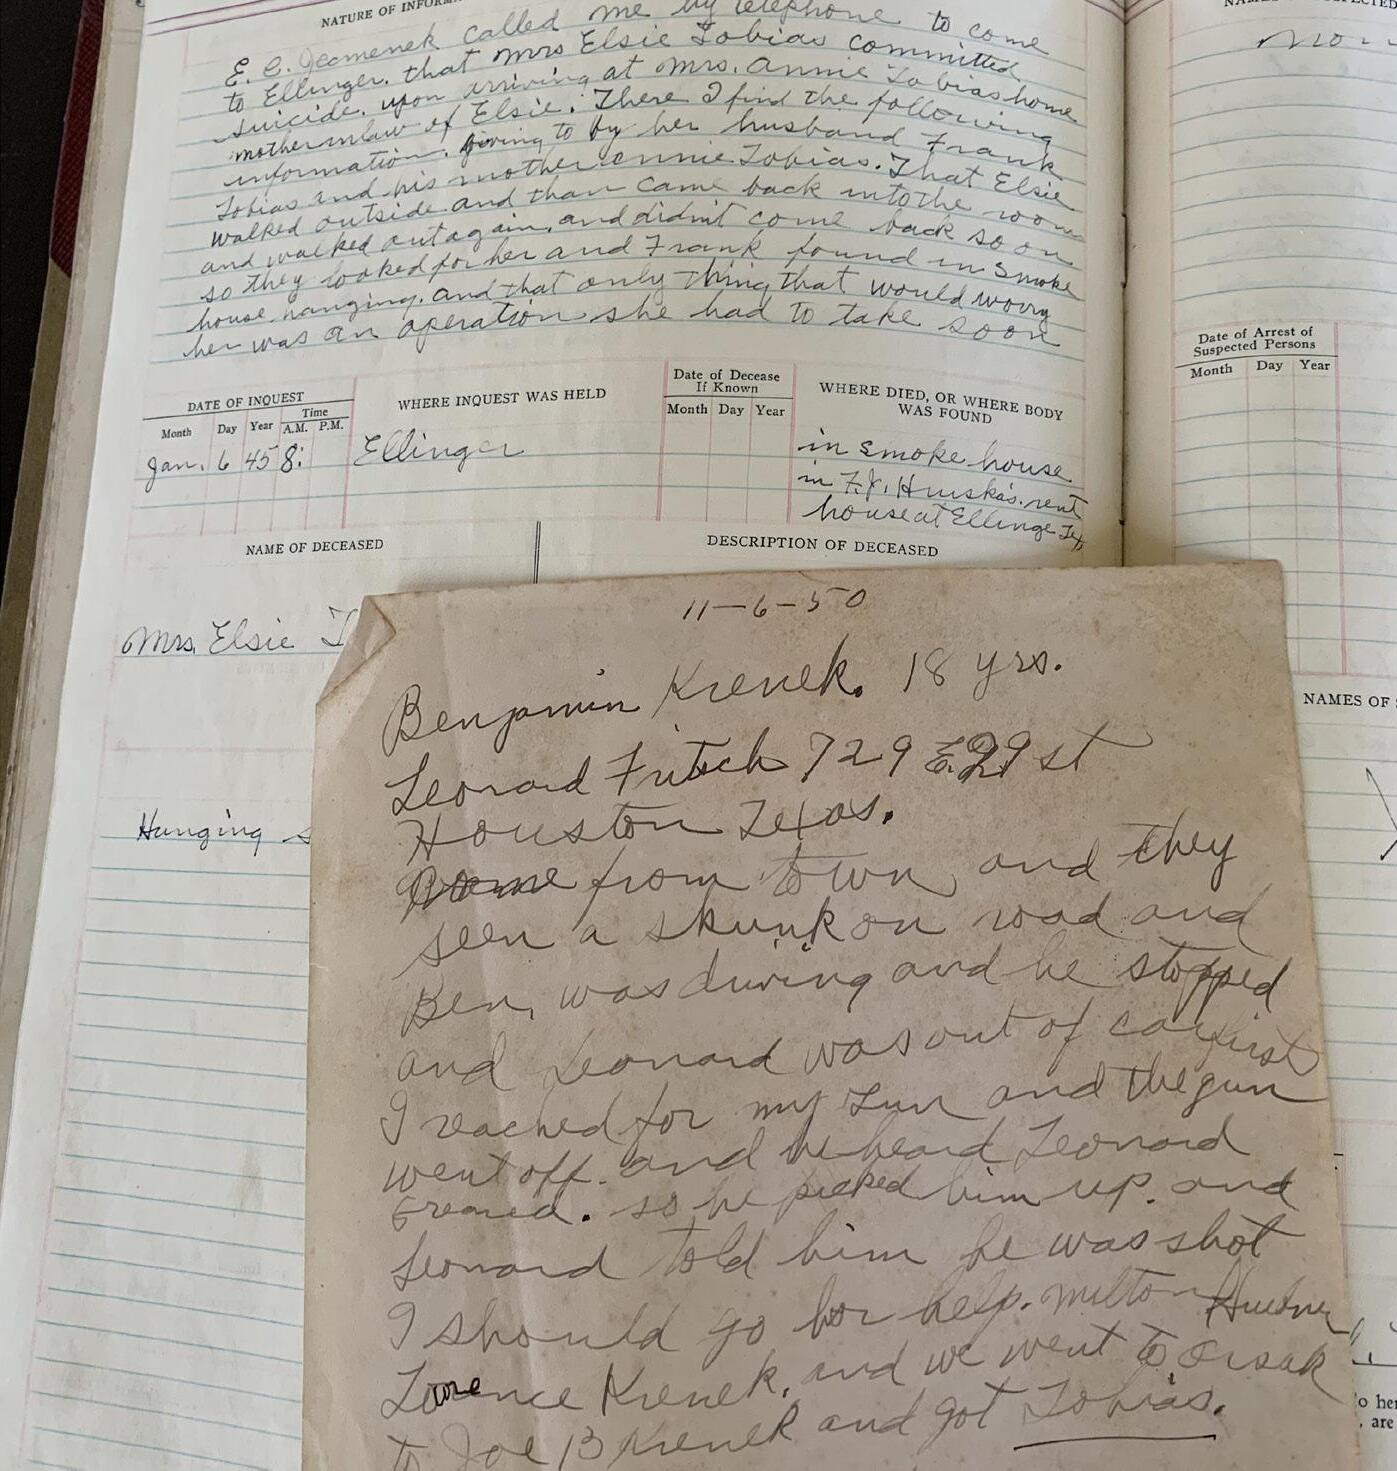 NATURE OF INFORM
E. C. Jecmenek called me by telephone to come
to Ellinger. that Mrs Elsie Tobias committed
suicide. upon arriving at Mrs. Annie Tobias home
mother inlaw of Elsie. There I find the following
information. giving to by her husband Frank
Tobias and his mother Annie Tobias. That Elsie
walked outside and than came back into the room
and walked out again, and didn't come back soon
so they looked for her and Frank found in Smoke
house hanging. and that only thing that would worry
her was an operation she had to take soon
DATE OF INQUEST
Month Day Year Time
A.M. P.M.
Jan. 6 45 8:
WHERE INQUEST WAS HELD
Ellinger
Date of Decease
If Known
Month Day Year
WHERE DIED, OR WHERE BODY
WAS FOUND
in smoke house
in F.J. rent
house at Ellinge Tex
NAME OF DECEASED
DESCRIPTION OF DECEASED
Mrs. Elsie T
Hanging s
11-6-50
Benjamin Krenek. 18 yrs.
Leonard Fritsch 729 E. 29 st
Houston Texas.
from town and they
seen a skunk on road and
Ben, was driving and he stopped
and Leonard was out of car first
I reached for my gun and the gun
went off. and he heard Leonard
so he picked him up. and
Leonard told him he was shot
I should go for help. Milton
Larence Krenek, and we went to Orsak
to Joe B Krenek and got Tobias.
Date of Arrest of
Suspected Persons
Month Day Year
NAMES OF